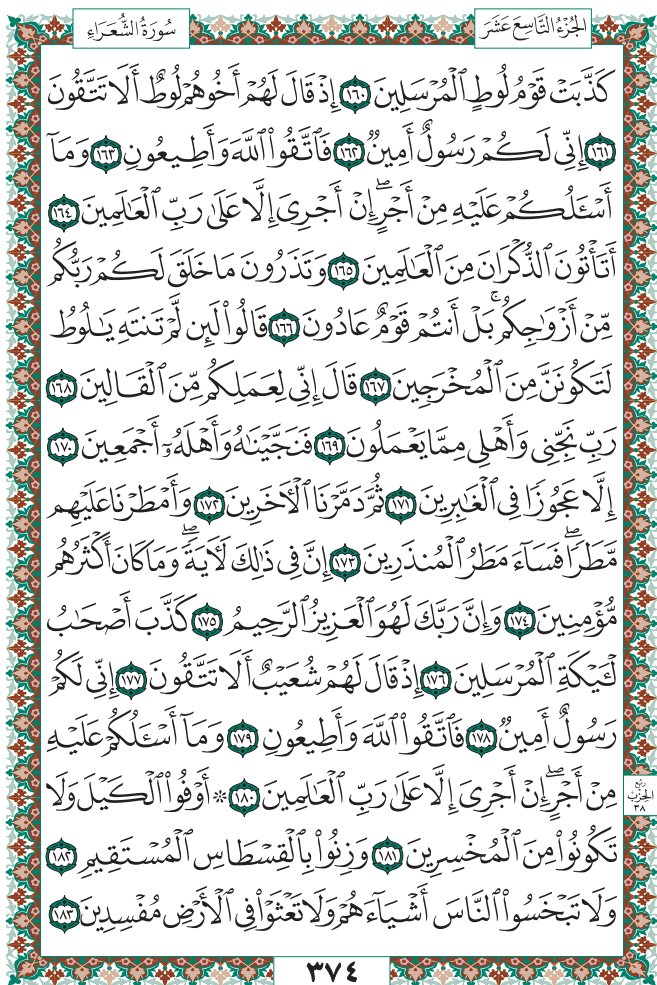 سُورَةُ الشُّعَرَاءِ
الجُزْءُ التَّاسِعَ عَشَرَ
كَذَّبَتْ قَوْمُ لُوطٍ ٱلْمُرْسَلِينَ ١٦٠ إِذْ قَالَ لَهُمْ أَخُوهُمْ لُوطٌ أَلَا تَتَّقُونَ
١٦١ إِنِّى لَكُمْ رَسُولٌ أَمِينٌ ١٦٢ فَٱتَّقُوا۟ ٱللَّهَ وَأَطِيعُونِ ١٦٣ وَمَآ
أَسْـَٔلُكُمْ عَلَيْهِ مِنْ أَجْرٍ ۖ إِنْ أَجْرِىَ إِلَّا عَلَىٰ رَبِّ ٱلْعَـٰلَمِينَ ١٦٤
أَتَأْتُونَ ٱلذُّكْرَانَ مِنَ ٱلْعَـٰلَمِينَ ١٦٥ وَتَذَرُونَ مَا خَلَقَ لَكُمْ رَبُّكُم
مِّنْ أَزْوَٰجِكُم ۚ بَلْ أَنتُمْ قَوْمٌ عَادُونَ ١٦٦ قَالُوا۟ لَئِن لَّمْ تَنتَهِ يَـٰلُوطُ
لَتَكُونَنَّ مِنَ ٱلْمُخْرَجِينَ ١٦٧ قَالَ إِنِّى لِعَمَلِكُم مِّنَ ٱلْقَالِينَ ١٦٨
رَبِّ نَجِّنِى وَأَهْلِى مِمَّا يَعْمَلُونَ ١٦٩ فَنَجَّيْنَـٰهُ وَأَهْلَهُۥٓ أَجْمَعِينَ ١٧٠
إِلَّا عَجُوزًا فِى ٱلْغَـٰبِرِينَ ١٧١ ثُمَّ دَمَّرْنَا ٱلْـَٔاخَرِينَ ١٧٢ وَأَمْطَرْنَا عَلَيْهِم
مَّطَرًا ۖ فَسَآءَ مَطَرُ ٱلْمُنذَرِينَ ١٧٣ إِنَّ فِى ذَٰلِكَ لَـَٔايَةً ۖ وَمَا كَانَ أَكْثَرُهُم
مُّؤْمِنِينَ ١٧٤ وَإِنَّ رَبَّكَ لَهُوَ ٱلْعَزِيزُ ٱلرَّحِيمُ ١٧٥ كَذَّبَ أَصْحَـٰبُ
لْـَٔيْكَةِ ٱلْمُرْسَلِينَ ١٧٦ إِذْ قَالَ لَهُمْ شُعَيْبٌ أَلَا تَتَّقُونَ ١٧٧ إِنِّى لَكُمْ
رَسُولٌ أَمِينٌ ١٧٨ فَٱتَّقُوا۟ ٱللَّهَ وَأَطِيعُونِ ١٧٩ وَمَآ أَسْـَٔلُكُمْ عَلَيْهِ
مِنْ أَجْرٍ ۖ إِنْ أَجْرِىَ إِلَّا عَلَىٰ رَبِّ ٱلْعَـٰلَمِينَ ١٨٠ ۞ أَوْفُوا۟ ٱلْكَيْلَ وَلَا
رُبْعُ
الحِزْبِ
٣٨
تَكُونُوا۟ مِنَ ٱلْمُخْسِرِينَ ١٨١ وَزِنُوا۟ بِٱلْقِسْطَاسِ ٱلْمُسْتَقِيمِ ١٨٢
وَلَا تَبْخَسُوا۟ ٱلنَّاسَ أَشْيَآءَهُمْ وَلَا تَعْثَوْا۟ فِى ٱلْأَرْضِ مُفْسِدِينَ ١٨٣
٣٧٤